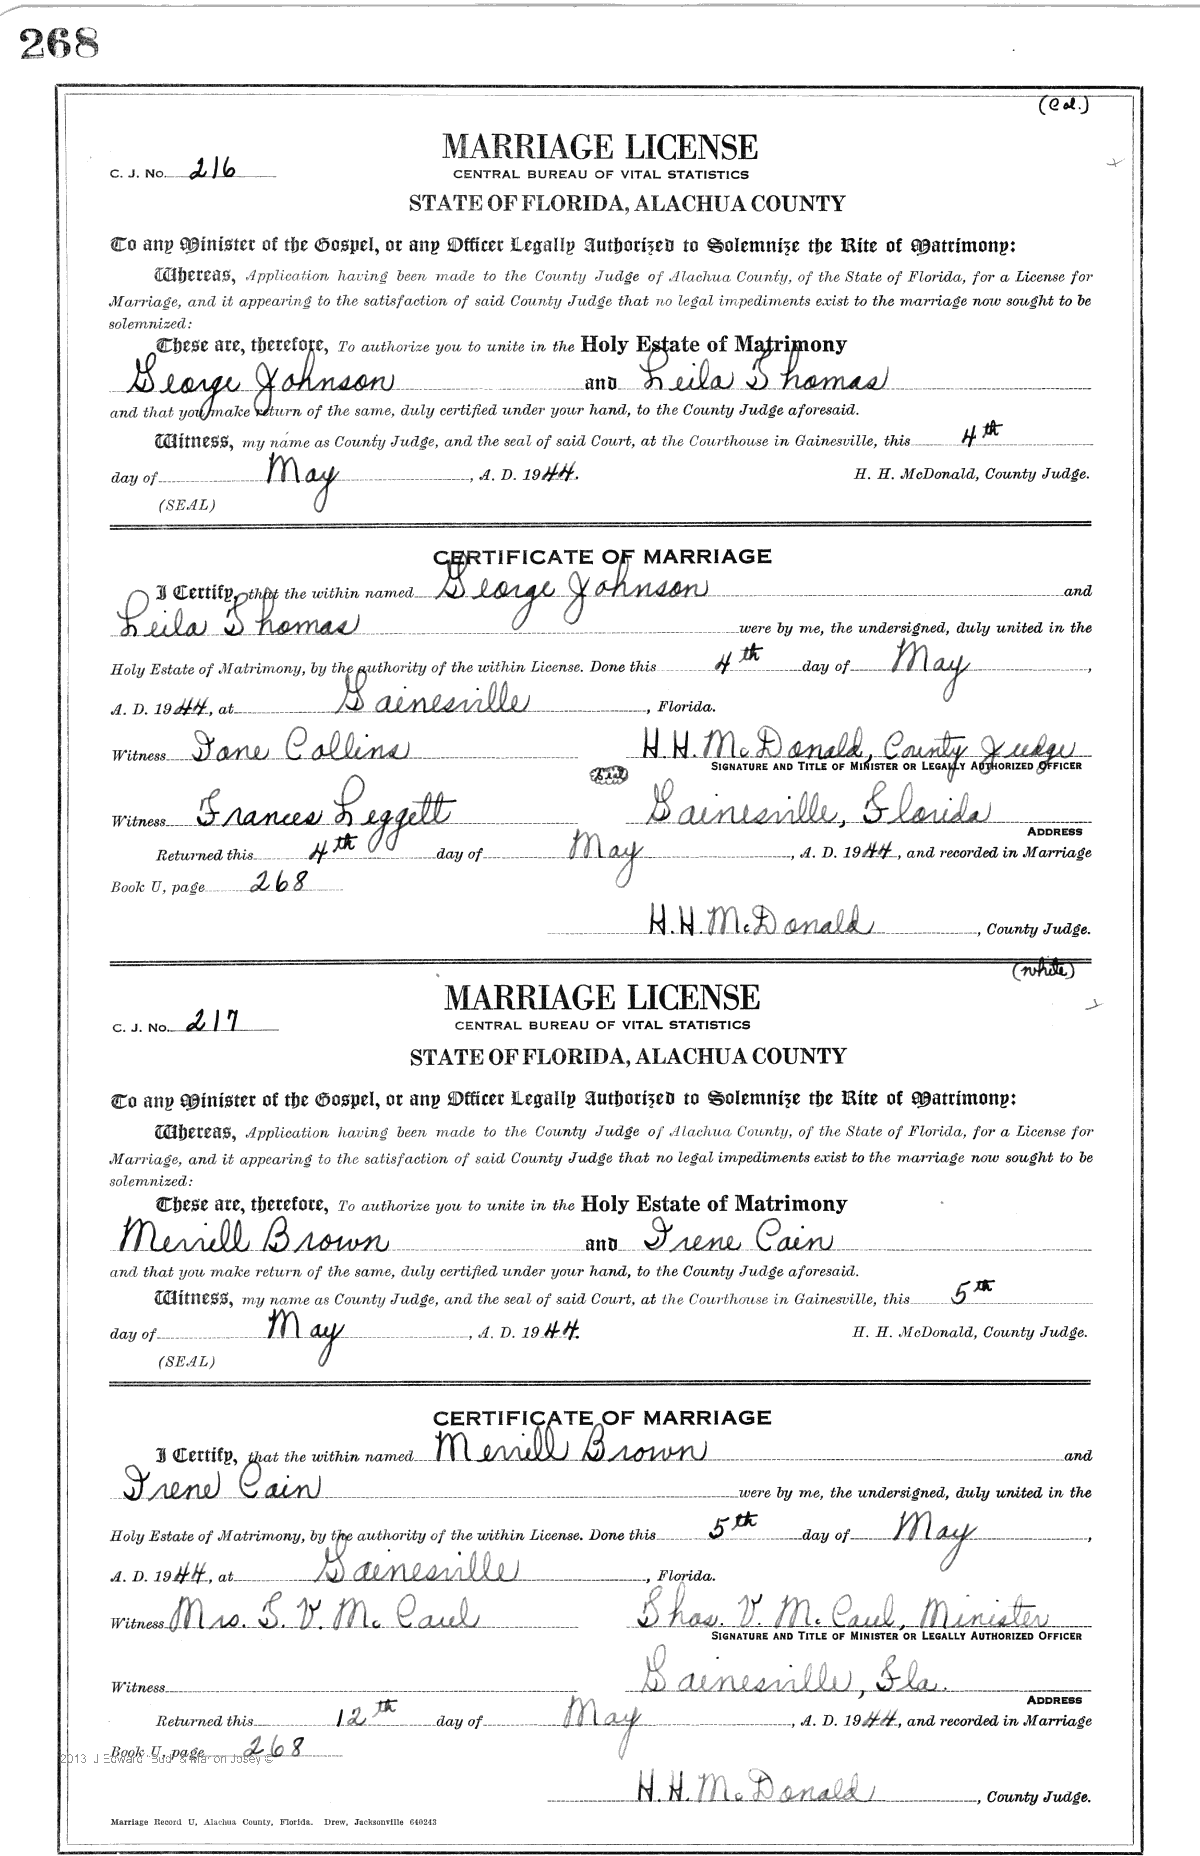 268
(Col.)
MARRIAGE LICENSE
C. J. No. 216
CENTRAL BUREAU OF VITAL STATISTICS
STATE OF FLORIDA, ALACHUA COUNTY
To any Minister of the Gospel, or any Officer Legally Authorized to Solemnize the Rite of Matrimony:
Whereas, Application having been made to the County Judge of Alachua County, of the State of Florida, for a License for
Marriage, and it appearing to the satisfaction of said County Judge that no legal impediments exist to the marriage now sought to be
solemnized:
These are, therefore, To authorize you to unite in the Holy Estate of Matrimony
George Johnson and Leila Thomas
and that you make return of the same, duly certified under your hand, to the County Judge aforesaid.
Witness, my name as County Judge, and the seal of said Court, at the Courthouse in Gainesville, this 4th
day of May, A. D. 1944. H. H. McDonald, County Judge.
(SEAL)
CERTIFICATE OF MARRIAGE
I Certify, that the within named George Johnson and
Leila Thomas were by me, the undersigned, duly united in the
Holy Estate of Matrimony, by the authority of the within License. Done this 4th day of May,
A. D. 1944, at Gainesville, Florida.
Witness Jane Collins H. H. McDonald, County Judge
SIGNATURE AND TITLE OF MINISTER OR LEGALLY AUTHORIZED OFFICER
Seal
Witness Frances Leggett Gainesville, Florida
ADDRESS
Returned this 4th day of May, A. D. 1944, and recorded in Marriage
Book U, page 268
H. H. McDonald, County Judge.
(white)
MARRIAGE LICENSE
C. J. No. 217
CENTRAL BUREAU OF VITAL STATISTICS
STATE OF FLORIDA, ALACHUA COUNTY
To any Minister of the Gospel, or any Officer Legally Authorized to Solemnize the Rite of Matrimony:
Whereas, Application having been made to the County Judge of Alachua County, of the State of Florida, for a License for
Marriage, and it appearing to the satisfaction of said County Judge that no legal impediments exist to the marriage now sought to be
solemnized:
These are, therefore, To authorize you to unite in the Holy Estate of Matrimony
Merrill Brown and Irene Cain
and that you make return of the same, duly certified under your hand, to the County Judge aforesaid.
Witness, my name as County Judge, and the seal of said Court, at the Courthouse in Gainesville, this 5th
day of May, A. D. 1944. H. H. McDonald, County Judge.
(SEAL)
CERTIFICATE OF MARRIAGE
I Certify, that the within named Merrill Brown and
Irene Cain were by me, the undersigned, duly united in the
Holy Estate of Matrimony, by the authority of the within License. Done this 5th day of May,
A. D. 1944, at Gainesville, Florida.
Witness Mrs. T. V. McCaul Thos. V. McCaul, Minister
SIGNATURE AND TITLE OF MINISTER OR LEGALLY AUTHORIZED OFFICER
Witness Gainesville, Fla.
ADDRESS
Returned this 12th day of May, A. D. 1944, and recorded in Marriage
Book U, page 268
2013 J Edward "Bud" & Marion Josey ©
H. H. McDonald, County Judge.
Marriage Record U, Alachua County, Florida. Drew, Jacksonville 640243